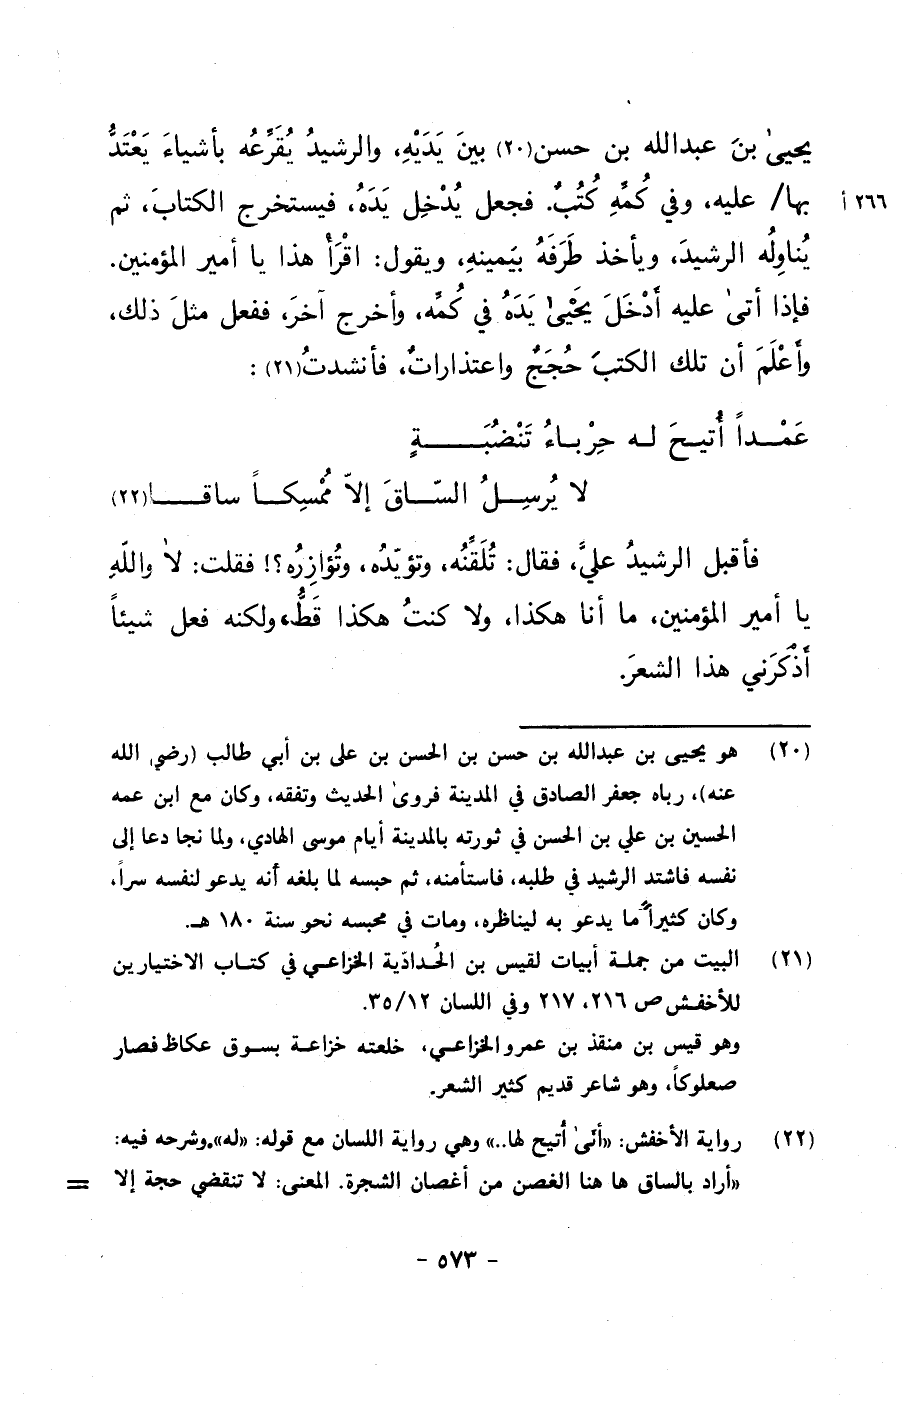 يحيىٰ بنَ عبدالله بن حسن(٢٠) بينَ يَدَيْهِ، والرشيدُ يُقَرِّعُه بأشياءَ يَعْتَدُّ
٢٦٦ أ بها/ عليه، وفي كُمِّهِ كُتُبٌ. فجعل يُدْخِل يَدَهُ، فيستخرج الكتابَ، ثم
يُناوِلُه الرشيدَ، ويأخذ طَرَفَهُ بيَمينهِ، ويقول: اقْرَأْ هذا يا أمير المؤمنين.
فإذا أتىٰ عليه أَدْخَلَ يَحْيىٰ يَدَهُ في كُمِّه، وأخرج آخرَ، ففعل مثلَ ذلك،
وأَعْلَمَ أن تلك الكتبَ حُجَجٌ واعتذاراتٌ، فأنشدتُ(٢١) :
عَمْداً أُتيحَ له حِرْباءُ تَنْضُبَةٍ
لا يُرسِلُ السّاقَ إلاّ مُمْسِكاً ساقا(٢٢)
فأقبل الرشيدُ عليَّ، فقال: تُلَقِّنُه، وتؤيّدُه، وتُؤازِرُه؟! فقلت: لا واللهِ
يا أمير المؤمنين، ما أنا هكذا، ولا كنتُ هكذا قَطُّ، ولكنه فعل شيئاً
أَذْكَرَني هذا الشعرَ.
(٢٠) هو يحيى بن عبدالله بن حسن بن الحسن بن على بن أبي طالب (رضي الله
عنه)، رباه جعفر الصادق في المدينة فروىٰ الحديث وتفقه، وكان مع ابن عمه
الحسين بن علي بن الحسن في ثورته بالمدينة أيام موسى الهادي، ولما نجا دعا إلى
نفسه فاشتد الرشيد في طلبه، فاستأمنه، ثم حبسه لما بلغه أنه يدعو لنفسه سراً،
وكان كثيراً ما يدعو به ليناظره، ومات في محبسه نحو سنة ١٨٠ هـ.
(٢١) البيت من جملة أبيات لقيس بن الحُدادّية الخزاعي في كتاب الاختيارين
للأخفش ص ٢١٦، ٢١٧ وفي اللسان ٣٥/١٢.
وهو قيس بن منقذ بن عمرو الخزاعي، خلعته خزاعة بسوق عكاظ فصار
صعلوكاً، وهو شاعر قديم كثير الشعر.
(٢٢) رواية الأخفش: «أنّىٰ أُتيح لها..» وهي رواية اللسان مع قوله: «له». وشرحه فيه:
«أراد بالساق ها هنا الغصن من أغصان الشجرة. المعنى: لا تنقضي حجة إلا =
- ٥٧٣ -